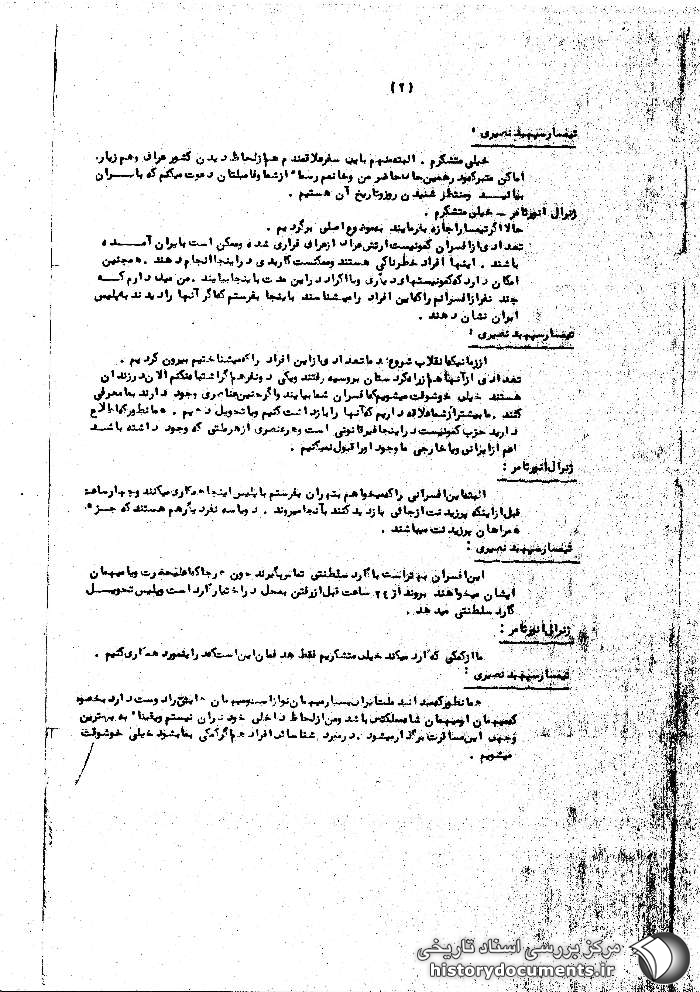 (۲)
تیمسار سپهبد نصیری :
خیلی متشکرم . البته منهم باین سفر علاقمندم هم از لحاظ دیدن کشور عراق و هم زیارت
اماکن متبرکه و در همین جا لحاضر من و خانمم رسما" از شما و فامیلتان دعوت میکنم که با سران
بیائید و منتظر شنیدن روز و تاریخ آن هستیم .
ژنرال انور ثامر ـ خیلی متشکرم .
حالا اگر تیمسار اجازه بفرمایند بموضوع اصلی برگردیم .
تعدادی از افسران کمونیست ارتش عراق از عراق فراری شده و ممکن است بایران آمده
باشند . اینها افراد خطرناکی هستند و ممکنست کار بدی در اینجا انجام دهند . همچنین
امکان دارد که کمونیستهای دیگری و یا اکراد در این مدت باینجا بیایند . من میل دارم که
چند نفر از افسرانم را که این افراد را میشناسند باینجا بفرستم که اگر آنها را دیدند به پلیس
ایران نشان دهند .
تیمسار سپهبد نصیری :
از زمانیکه انقلاب شروع شد ما تعدادی از این افراد را که میشناختیم بیرون کردیم .
تعدادی از آنها هم از راه کردستان بروسیه رفتند و یکی دو نفر هم اگر اشتباه نکنم الان در زندان
هستند خیلی خوشوقت میشویم که افسران شما بیایند و اگر چنین عناصری وجود دارند بما معرفی
کنند . ما بیشتر از شما علاقه داریم که آنها را بازداشت کنیم و یا تحویل دهیم . همانطور که اطلاع
دارید حزب کمونیست در اینجا غیرقانونی است و هر عنصری از هر ملتی که وجود داشته باشد
اعم از ایرانی و یا خارجی ما وجود او را قبول نمیکنیم .
ژنرال انور ثامر :
البته این افسرانی را که میخواهم بتهران بفرستم با پلیس اینجا همکاری میکنند و چهار ساعت
قبل از اینکه پرزیدنت از جائی بازدید کنند بآنجا میروند . دو یا سه نفر دیگر هم هستند که جزء
همراهان پرزیدنت میباشند .
تیمسار سپهبد نصیری :
این افسران بهتر است با گارد سلطنتی تماس بگیرند چون هر جا که اعلیحضرت و یا میهمان
ایشان میخواهند بروند از ۲۴ ساعت قبل از رفتن به محل در اختیار گارد است و پلیس تحویل
گارد سلطنتی میدهد .
ژنرال انور ثامر :
ما از کمکی که گارد میکند خیلی متشکریم فقط هدفمان این است که در اینمورد همکاری کنیم .
تیمسار سپهبد نصیری :
همانطور که میدانید ملت ایران بسیار میهمان نواز است و میهمان را دوست دارد بخصوص
که میهمان او میهمان شاه مملکتش باشد و من از لحاظ داخلی خود نگران نیستم و یقینا" به بهترین
وجهی این مسافرت برگذار میشود . در مورد شناسائی افراد هم اگر کمکی بما بشود خیلی خوشوقت
میشویم .
مرکز بررسی اسناد تاریخی
historydocuments.ir